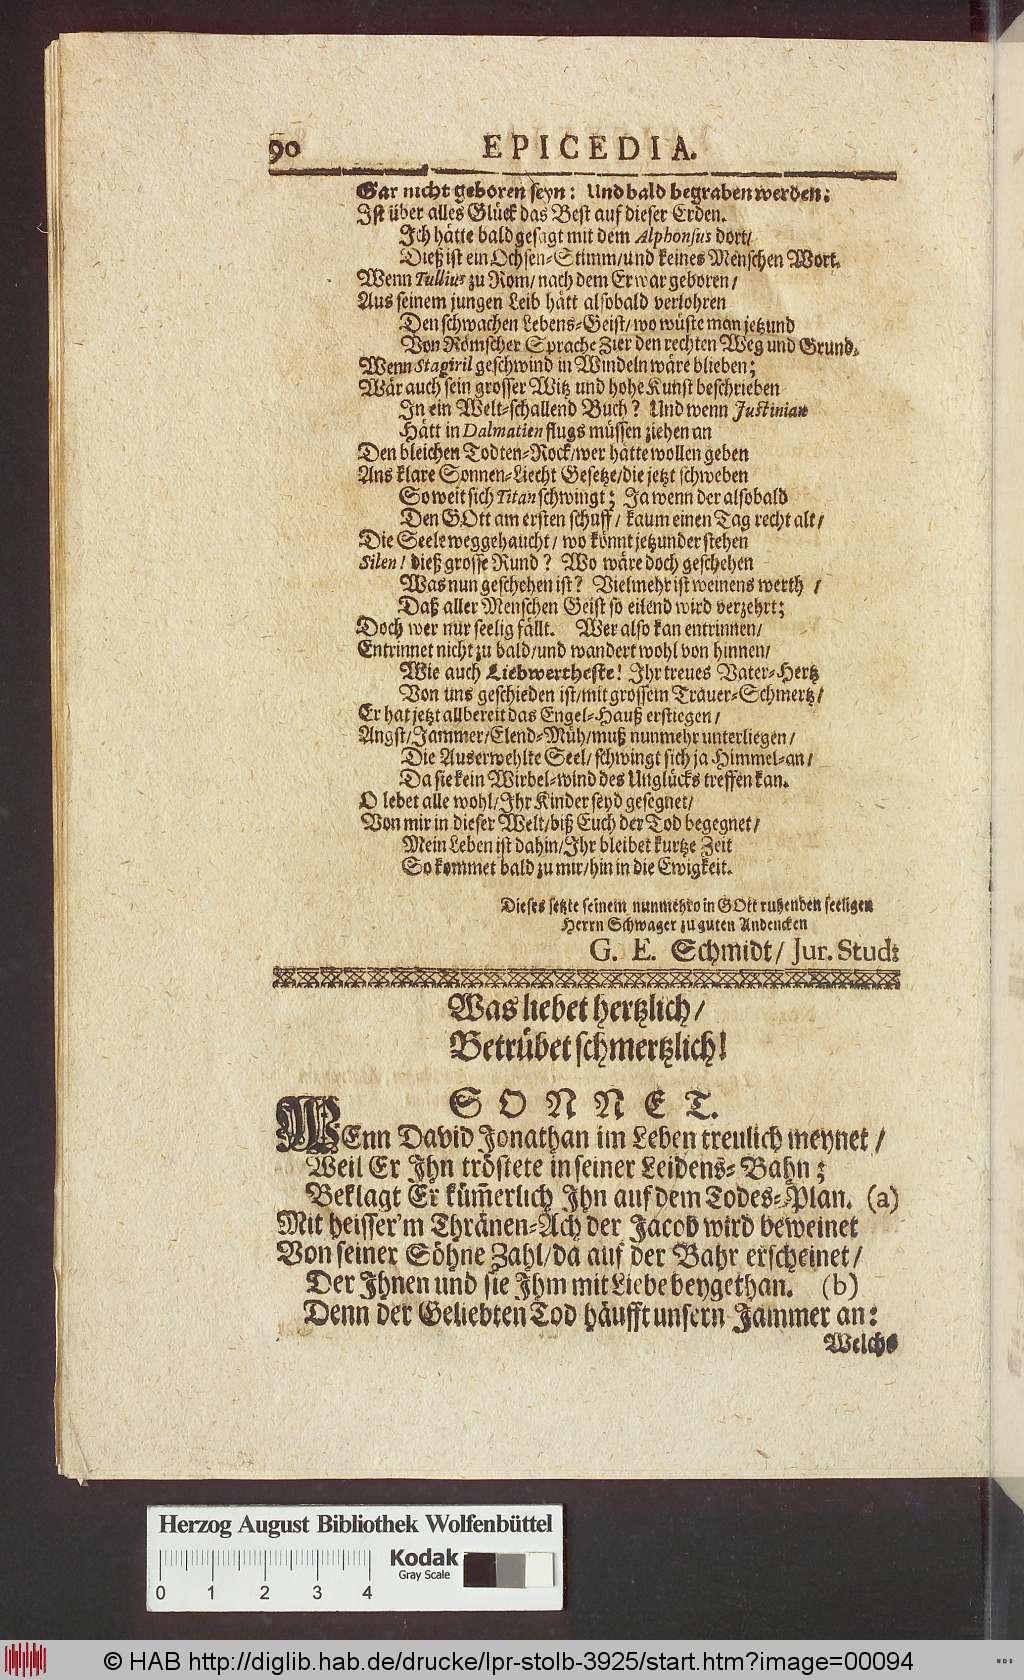 90 EPICEDIA.
Gar nicht geboren seyn: Und bald begraben werden:
Ist über alles Glück das Best auf dieser Erden.
Ich hätte bald gesagt mit dem Alphonsus dort/
Dieß ist ein Ochsen-Stimm/und keines Menschen Wort.
Wenn Tullius zu Rom/nach dem Er war geboren/
Aus seinem jungen Leib hätt alsobald verlohren
Den schwachen Lebens-Geist/wo wüste man jetzund
Von Römscher Sprache Zier den rechten Weg und Grund.
Wenn Stagiril geschwind in Windeln wäre blieben;
Wär auch sein grosser Witz und hohe Kunst beschrieben
In ein Welt-schallend Buch? Und wenn Justinian
Hätt in Dalmatien flugs müssen ziehen an
Den bleichen Todten-Rock/wer hätte wollen geben
Ans klare Sonnen-Liecht Gesetze/die jetzt schweben
So weit sich Titan schwingt; Ja wenn der alsobald
Den GOtt am ersten schuff/ kaum einen Tag recht alt/
Die Seele weggehaucht/ wo könnt jetzunder stehen
Silen/ dieß grosse Rund? Wo wäre doch geschehen
Was nun geschehen ist? Vielmehr ist weinens werth /
Daß aller Menschen Geist so eilend wird verzehrt;
Doch wer nur seelig fällt. Wer also kan entrinnen/
Entrinnet nicht zu bald/und wandert wohl von hinnen/
Wie auch Liebwertheste! Ihr treues Vater-Hertz
Von uns geschieden ist/mit grossem Trauer-Schmertz/
Er hat jetzt allbereit das Engel-Hauß erstiegen/
Angst/Jammer/Elend-Müh/muß nunmehr unterliegen/
Die Auserwehlte Seel/ schwingt sich ja Himmel-an/
Da sie kein Wirbel-wind des Unglücks treffen kan.
O lebet alle wohl/Ihr Kinder seyd gesegnet/
Von mir in dieser Welt/biß Euch der Tod begegnet/
Mein Leben ist dahin/Ihr bleibet kurtze Zeit
So kommet bald zu mir/hin in die Ewigkeit.
Dieses setzte seinem nunmehro in GOtt ruhenden seeligen
Herrn Schwager zu guten Andencken
G. E. Schmidt/ Jur. Stud:
Was liebet hertzlich/
Betrübet schmertzlich!
SONNET.
WEnn David Jonathan im Leben treulich meynet /
Weil Er Ihn tröstete in seiner Leidens-Bahn;
Beklagt Er küm̃erlich Ihn auf dem Todes-Plan. (a)
Mit heisser'm Thränen-Ach der Jacob wird beweinet
Von seiner Söhne Zahl/da auf der Bahr erscheinet/
Der Ihnen und sie Ihm mit Liebe beygethan. (b)
Denn der Geliebten Tod häufft unsern Jammer an:
Welche
Herzog August Bibliothek Wolfenbüttel
Kodak
Gray Scale
0 1 2 3 4
© HAB http://diglib.hab.de/drucke/lpr-stolb-3925/start.htm?image=00094